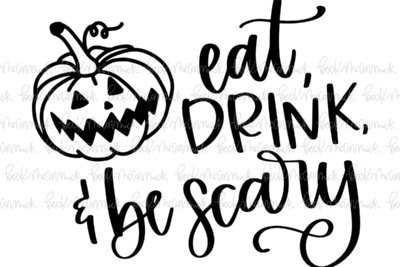 eat,
DRINK,
& be scary